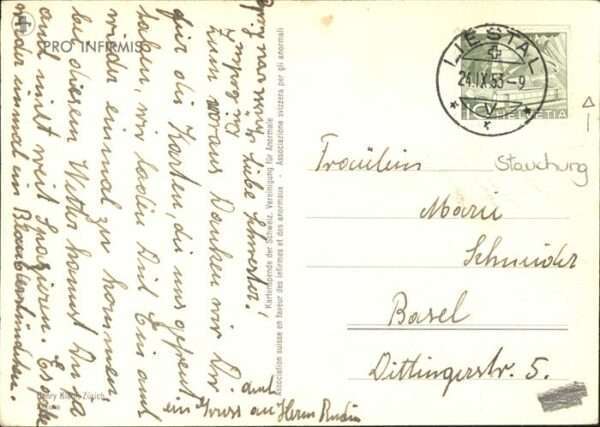 PRO INFIRMIS
Liebe Schwester!
Zum voraus Danken wir Dir
für die Karten, die uns gefreut
haben, wir laden Dich ein am
wieder einmal zu kommen,
bei diesem Wetter kannst Du ja
auch nicht weit Spazieren. Es gäbe
wieder einmal ein Plauderstündchen.
ein Gruss an Herrn Rudin
Kartenspende der Schweiz. Vereinigung für Anormale
Association suisse en faveur des infirmes et des anormaux - Associazione svizzera per gli anormali
Zürich
LIESTAL
24.IX.53-9
V
HELVETIA
Stauchung
Fräulein
Marie
Schneider
Basel
Dittingerstr. 5.